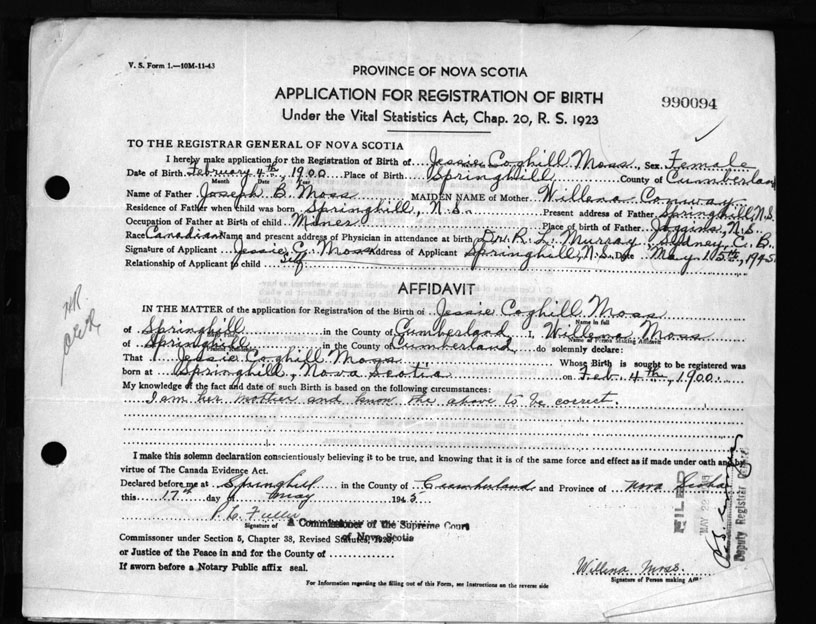 V. S. Form 1.—10M-11-43
PROVINCE OF NOVA SCOTIA
APPLICATION FOR REGISTRATION OF BIRTH
990094
Under the Vital Statistics Act, Chap. 20, R. S. 1923
TO THE REGISTRAR GENERAL OF NOVA SCOTIA
I hereby make application for the Registration of Birth of Jessie Coghill Moss, Sex Female
Date of Birth February 4th, 1900 Place of Birth Springhill County of Cumberland
Month Date Year
Name of Father Joseph B. Moss MAIDEN NAME of Mother Willena Conway
Residence of Father when child was born Springhill, N.S. Present address of Father Springhill, N.S.
Occupation of Father at Birth of child Miner Place of Birth of Father Joggins, N.S.
Race Canadian Name and present address of Physician in attendance at birth Dr. R. L. Murray, Sydney, C. B.
Signature of Applicant Jessie C. Moss Address of Applicant Springhill, N.S. Date May 15th, 1945
Relationship of Applicant to child Self
AFFIDAVIT
IN THE MATTER of the application for Registration of the Birth of Jessie Coghill Moss
Name in full
of Springhill in the County of Cumberland I, Willena Moss
Name of Person Making Affidavit
of Springhill in the County of Cumberland, do solemnly declare:
That Jessie Coghill Moss Whose Birth is sought to be registered was
born at Springhill, Nova Scotia on Feb. 4th, 1900.
My knowledge of the fact and date of such Birth is based on the following circumstances:
I am her mother and know the above to be correct.
I make this solemn declaration conscientiously believing it to be true, and knowing that it is of the same force and effect as if made under oath and by
virtue of The Canada Evidence Act.
Declared before me at Springhill in the County of Cumberland and Province of Nova Scotia
this 17th day of May 1945
Signature of A Commissioner of the Supreme Court
of Nova Scotia
Commissioner under Section 5, Chapter 38, Revised Statutes, 1923,
or Justice of the Peace in and for the County of
If sworn before a Notary Public affix seal.
Willena Moss
Signature of Person making Aff
For Information regarding the filling out of this Form, see Instructions on the reverse side
FILED
MAY 22
Deputy Registrar General